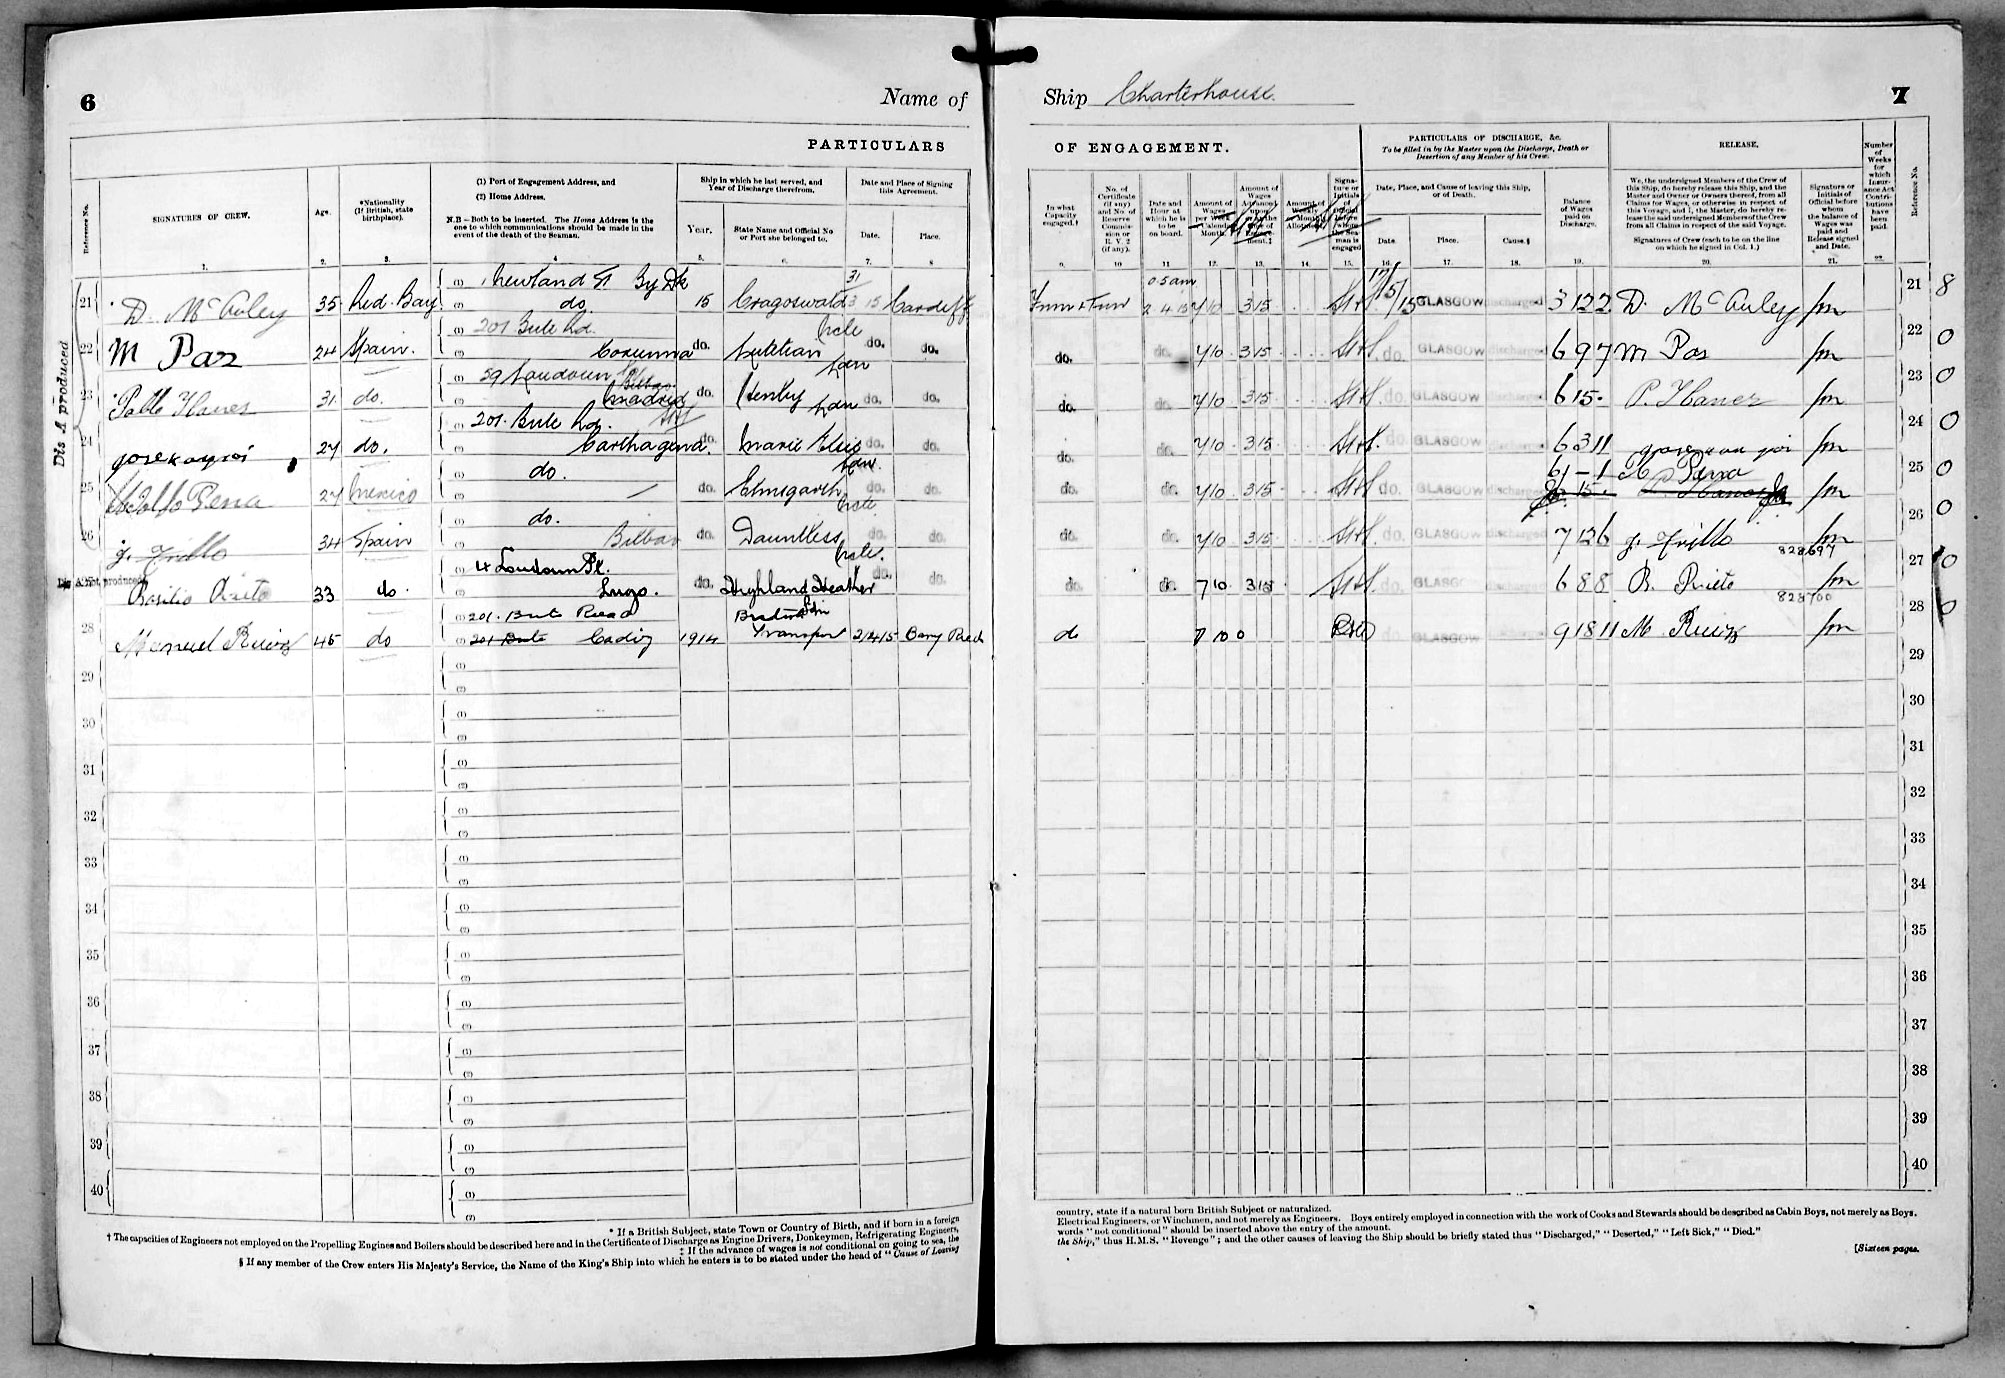 6
Name of
PARTICULARS
Reference No.
SIGNATURES OF CREW.
Age.
*Nationality
(If British, state
birthplace).
(1) Port of Engagement Address, and
(2) Home Address.
N.B—Both to be inserted. The Home Address is the
one to which communications should be made in the
event of the death of the Seaman.
Ship in which he last served, and
Year of Discharge therefrom.
Year.
State Name and Official No
or Port she belonged to.
Date and Place of Signing
this Agreement.
Date.
Place.
1. 2. 3. 4 5. 6. 7. 8
Dis A produced
21 D. McAuley 35 Red Bay (1) 1 Newland St By Dk (2) do. 15 Cragoswald 31/3 15 Cardiff
22 M Paz 24 Spain. (1) 201 Bute Rd. (2) Corunna do. do. do.
23 31 do. (1) 59 Loudoun Bilbao (2) Madrid do. Henley Ldn do. do.
24 27 do. (1) 201. Bute Rd. (2) Carthagena do. Marie Elsie Ldn do. do.
25 Pena 27 Mexico (1) do. (2) do. Elmsgarth Ldn. do. do.
26 J. Trillo 34 Spain (1) do. (2) Bilbao do. Dauntless do. do.
Dis A not produced
Basilio Prieto 33 do. (1) 4 Loudoun Pl. (2) Lugo. do. Highland Heather do. do.
28 Manuel Ruiz 45 do (1) 201. Bute Road (2) 201 Bute Cadiz 1914 Transport 2/4/15 Barry
29 (1) (2)
30 (1) (2)
31 (1) (2)
32 (1) (2)
33 (1) (2)
34 (1) (2)
35 (1) (2)
36 (1) (2)
37 (1) (2)
38 (1) (2)
39 (1) (2)
40 (1) (2)
* If a British Subject, state Town or Country of Birth, and if born in a foreign
† The capacities of Engineers not employed on the Propelling Engines and Boilers should be described here and in the Certificate of Discharge as Engine Drivers, Donkeymen, Refrigerating Engineers,
‡ If the advance of wages is not conditional on going to sea, the
§ If any member of the Crew enters His Majesty's Service, the Name of the King's Ship into which he enters is to be stated under the head of "Cause of Leaving
Ship Charterhouse.
7
OF ENGAGEMENT.
PARTICULARS OF DISCHARGE, &c.
To be filled in by the Master upon the Discharge, Death or
Desertion of any Member of his Crew.
RELEASE.
Number
of
Weeks
for
which
Insur-
ance Act
Contri-
butions
have
been
paid.
Reference No.
In what
Capacity
engaged.†
No. of
Certificate
(if any)
and No. of
Reserve
Commis-
sion or
R. V. 2
(if any).
Date and
Hour at
which he is
to be
on board.
Amount of
Wages
per Week
Calendar
Month.
Amount of
Wages
Advanced
upon
ment.‡
Amount of
Weekly
or Monthly
Allotment.
Signa-
ture or
Initials
of
Official
before
whom
the Sea-
man is
engaged
Date, Place, and Cause of leaving this Ship,
or of Death.
Date.
Place.
Cause.§
Balance
of Wages
paid on
Discharge.
We, the undersigned Members of the Crew of
this Ship, do hereby release this Ship, and the
Master and Owner or Owners thereof, from all
Claims for Wages, or otherwise in respect of
this Voyage, and I, the Master, do hereby re-
lease the said undersigned Members of the Crew
from all Claims in respect of the said Voyage.
Signatures of Crew (each to be on the line
on which he signed in Col. 1.)
Signature or
Initials of
Official before
whom
the balance of
Wages was
paid and
Release signed
and Date.
9. 10 11 12. 13. 14. 15. 16. 17. 18. 19. 20. 21. 22
2.4.15 7/10 315 17/5/15 GLASGOW discharged 3 12 2 D. McAuley 21 8
do. do. 7/10 315 do. GLASGOW discharged 6 9 7 M Pas 22 0
do. do. 7/10 315 do. GLASGOW discharged 6 15 - 23 0
do. do. 7/10 315 do. GLASGOW discharged 6 3 11 24 0
do. do. 7/10 315 do. GLASGOW discharged 6 1 - 1 25 0
do. do. 7/10 315 do. GLASGOW discharged 7 12 6 J. Trillo 26 0
828697
do. do. 7 10 315 GLASGO 6 8 8 B. Prieto 27 0
828700
do 7 10 0 GLASGOW 9 18 11 M Ruiz 28 0
29
30
31
32
33
34
35
36
37
38
39
40
country, state if a natural born British Subject or naturalized.
Electrical Engineers, or Winchmen, and not merely as Engineers. Boys entirely employed in connection with the work of Cooks and Stewards should be described as Cabin Boys, not merely as Boys.
words "not conditional" should be inserted above the entry of the amount.
the Ship," thus H.M.S. "Revenge"; and the other causes of leaving the Ship should be briefly stated thus "Discharged," "Deserted," "Left Sick," "Died."
[Sixteen pages.